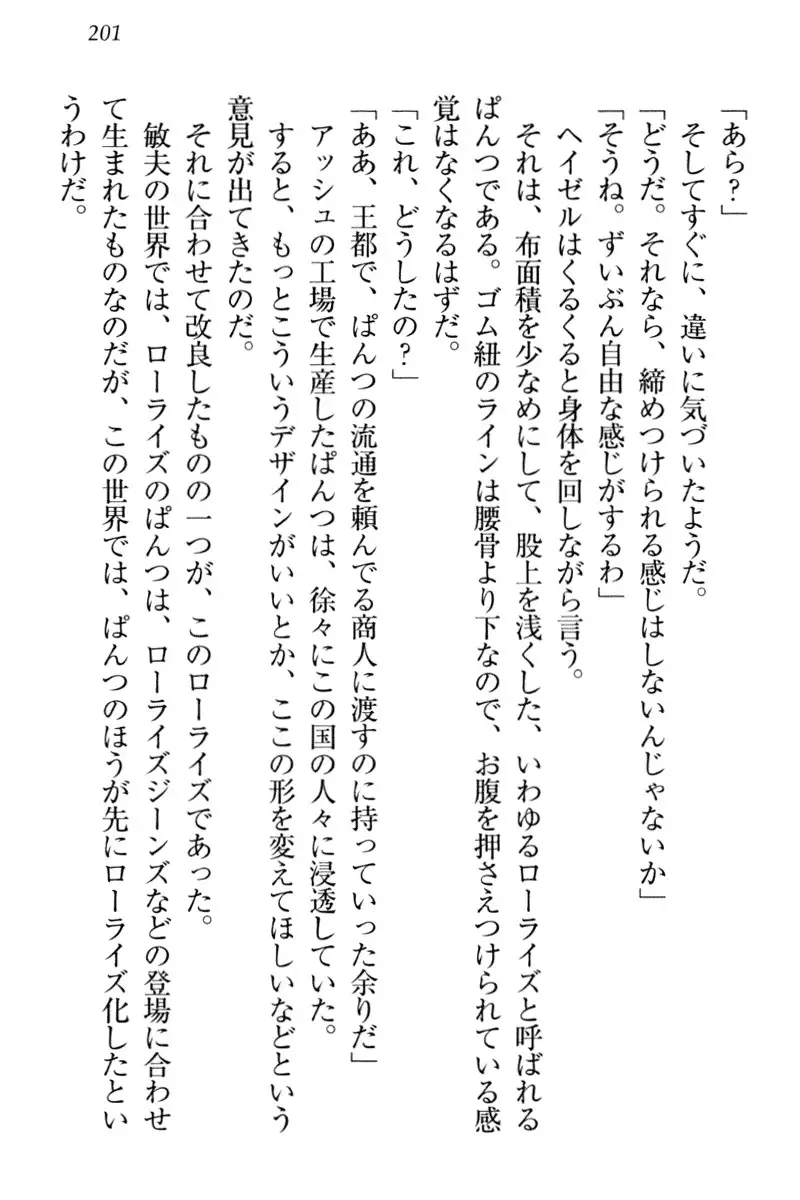 201
「あら？」
そしてすぐに、違いに気づいたようだ。
「どうだ。それなら、締めつけられる感じはしないんじゃないか」
「そうね。ずいぶん自由な感じがするわ」
ヘイゼルはくるくると身体を回しながら言う。
それは、布面積を少なめにして、股上を浅くした、いわゆるローライズと呼ばれる
ぱんつである。ゴム紐のラインは腰骨より下なので、お腹を押さえつけられている感
覚はなくなるはずだ。
「これ、どうしたの？」
「ああ、王都で、ぱんつの流通を頼んでる商人に渡すのに持っていった余りだ」
アッシュの工場で生産したぱんつは、徐々にこの国の人々に浸透していた。
すると、もっとこういうデザインがいいとか、ここの形を変えてほしいなどという
意見が出てきたのだ。
それに合わせて改良したものの一つが、このローライズであった。
敏夫の世界では、ローライズのぱんつは、ローライズジーンズなどの登場に合わせ
て生まれたものなのだが、この世界では、ぱんつのほうが先にローライズ化したとい
うわけだ。